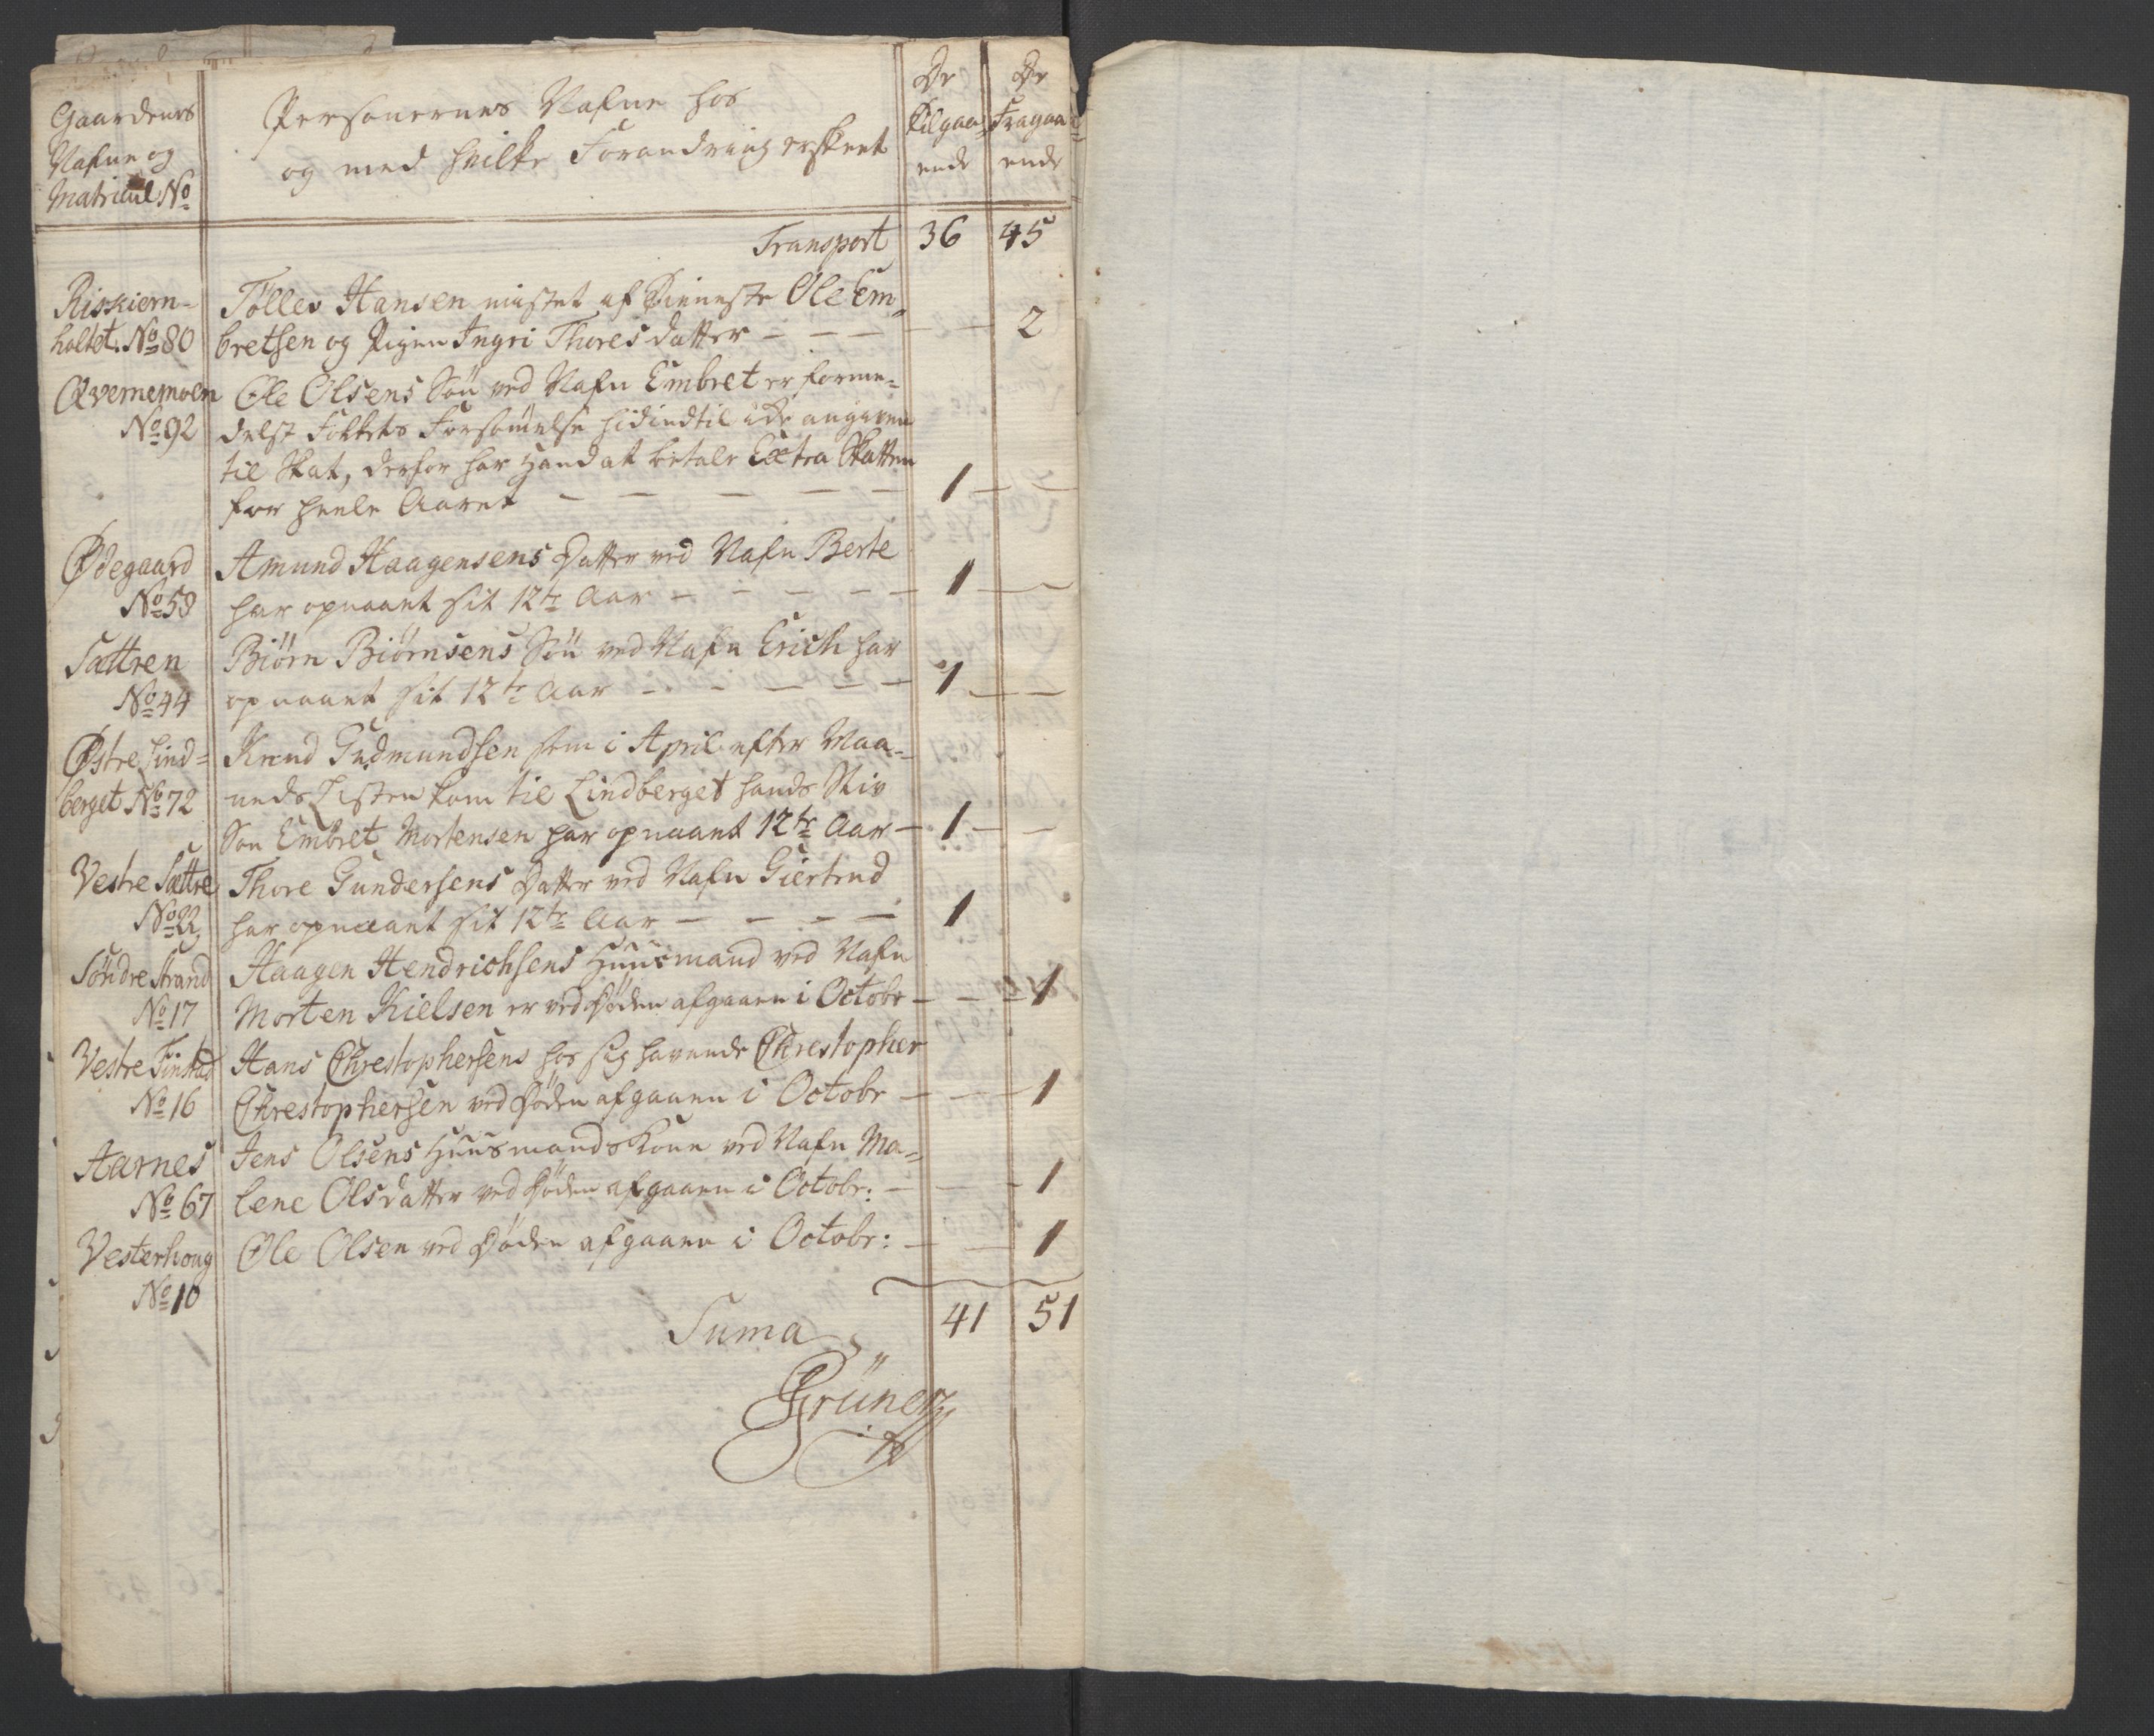 Gaardenes
Nafne og
Matricul No
Personernes Nafne hos
og med hvilke Forandring erskeet
De
Tilgaa-
ende
De
Fragaa-
ende
Transport 36 45
Riskiern-
holtet. No 80
Tøllev Hansen mistet af Tieneste Ole Em-
bretsen og Pigen Ingri Thores datter - - - 2
Qvernemoen
No 92
Ole Olsens Søn ved Nafn Embret er forme-
delst Folkets Forsømelse hidindtil icke angiven
til Skat, derfor har hand at betale Extra Skatten
for heele Aaret - - - - - 1
Ødegaard
No 58
Amund Haagensens Datter ved Nafn Berte
har opnaaet sit 12te Aar - - - - - 1
Sættren
No 44
Biørn Biørnsens Søn ved Nafn Erich har
opnaaet sit 12te Aar - - - - - 1
Østre Lind-
berget No 72
Knud Gudmundsen som i April efter Maa-
neds Listen kom til Lindberget hands Stiv
Søn Embret Mortensen har opnaaet 12te Aar - 1
Vestre Sættre
No 22
Thore Gundersens Datter ved Nafn Giertrud
har opnaaet sit 12te Aar - - - - 1
Søndre Strand
No 17
Haagen Hendrichsens Huusmand ved Nafn
Morten Kielsen er ved Døden afgaaen i Octobr - - - 1
Vestre Finstad
No 16
Hans Chrestophersens hos sig havende Chrestopher
Chrestophersen ved Døden afgaaen i Octobr - - - 1
Aarnes
No 67
Jens Olsens Huusmands Kone ved Nafn Ma-
lene Olsdatter ved Døden afgaaen i Octobr: - - - 1
Vesterhoug
No 10
Ole Olsen ved Døden afgaaen i Octobr: - - 1
Suma 41 51
Grüner